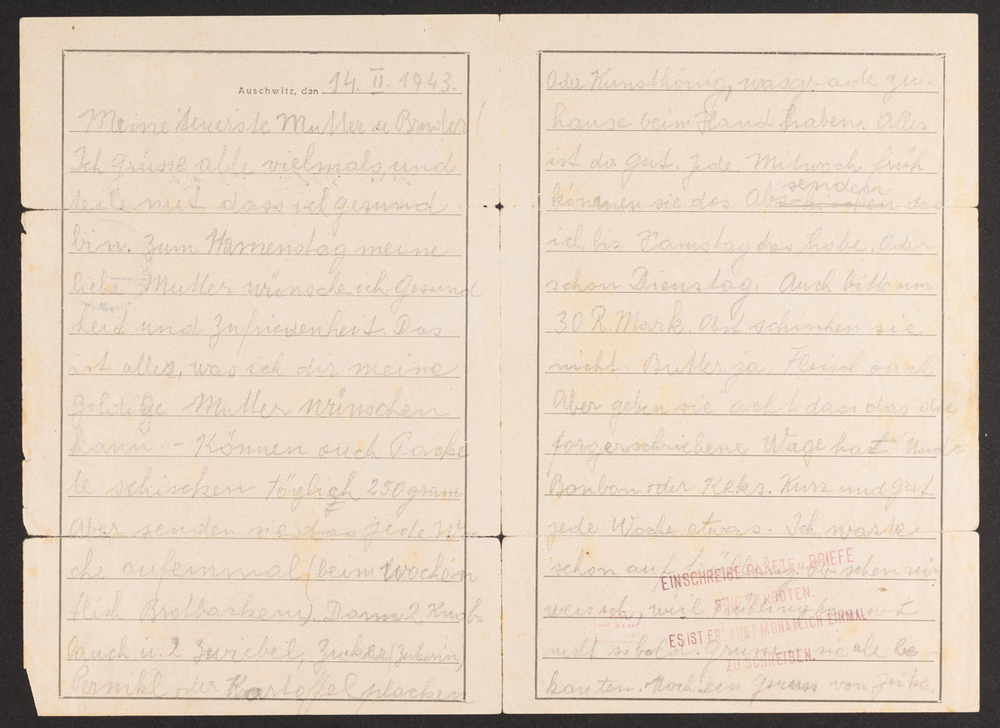 Auschwitz, den 14. II. 1943.
Meine teuerste Mutter u Bruder!
Ich Grüsse alle vielmals und
teile mit dass ich gesund
bin. Zum Namenstag meine
liebe Mutter wünsche ich Gesund
heit und Zufriedenheit. Das
ist alles, was ich dir meine
Mutter wünschen
kann. – Können auch Packe
te schischen täglich 250 gram
Aber senden sie das jede Wo
che aufeinmal (beim wochen
tlich Brotbacken). Dann 2 Knob
lauch u. 2 Zwiebel, Zucker
oder Kartoffelplacken
Oder Kunsthönig, was grade zu
hause beim Hand haben. Alles
ist da gut. Jede Mitwoch früh
senden
können sie das Ab das
ich bis Samstag das habe. Oder
schon Dienstag. Auch bitte um
30 R. Mark. Obst schinken sie
nicht. Butter ja, Fleisch auch
Aber geben sie acht dass das die
forgerschriebene Wage hat. Und
Bonbon oder Keks. Kurz und gut
jede Woche etwas. Ich warte
schon auf
weil
nicht Grüsse sie ale be
kanten. Noch ein Gruss von
EINSCHREIBE PAKETE u. BRIEFE
SIND VERBOTEN.
ES IST ERLAUBT MONATLICH EINMAL
ZU SCHREIBEN.